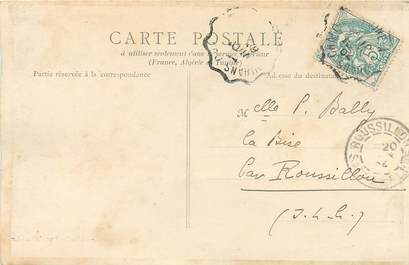 CARTE POSTALE
à utiliser seulement dans le Service intérieur
(France, Algérie et Tunisie)
Partie réservée à la correspondance
Adresse du destinataire
Melle P. Bally
la Bise
Par Roussillon
(I. & L.)
ROUSSILLON
20